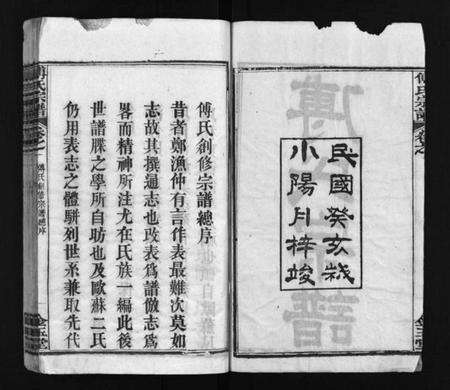 民國癸亥歲
小陽月梓竣
傅氏宗譜
傅氏創修宗譜總序
昔者鄭漁仲有言作表最難次莫如
志故其撰通志也改表爲譜倣志爲
畧而精神所注尤在氏族一編此後
世譜牒之學所自昉也及歐蘇二氏
仍用表志之體駢列世系兼取先代
傅氏宗譜
傅氏創修宗譜總序